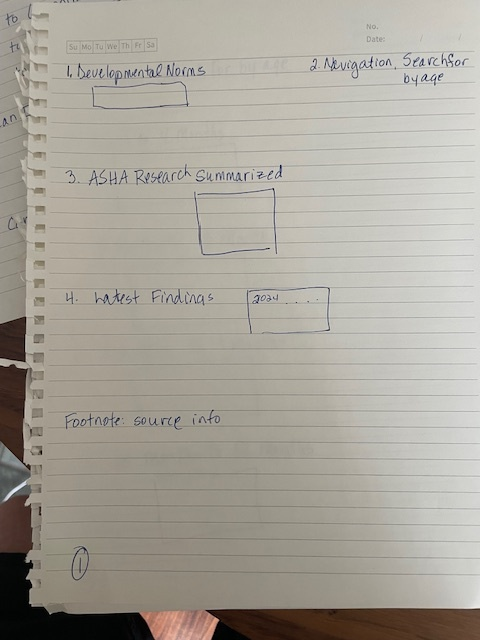 No.
Su Mo Tu We Th Fr Sa
Date:
1. Developmental Norms
2. Navigation, Search for
by age
3. ASHA Research Summarized
4. Latest Findings
2024 . . . .
Footnote: source info
1